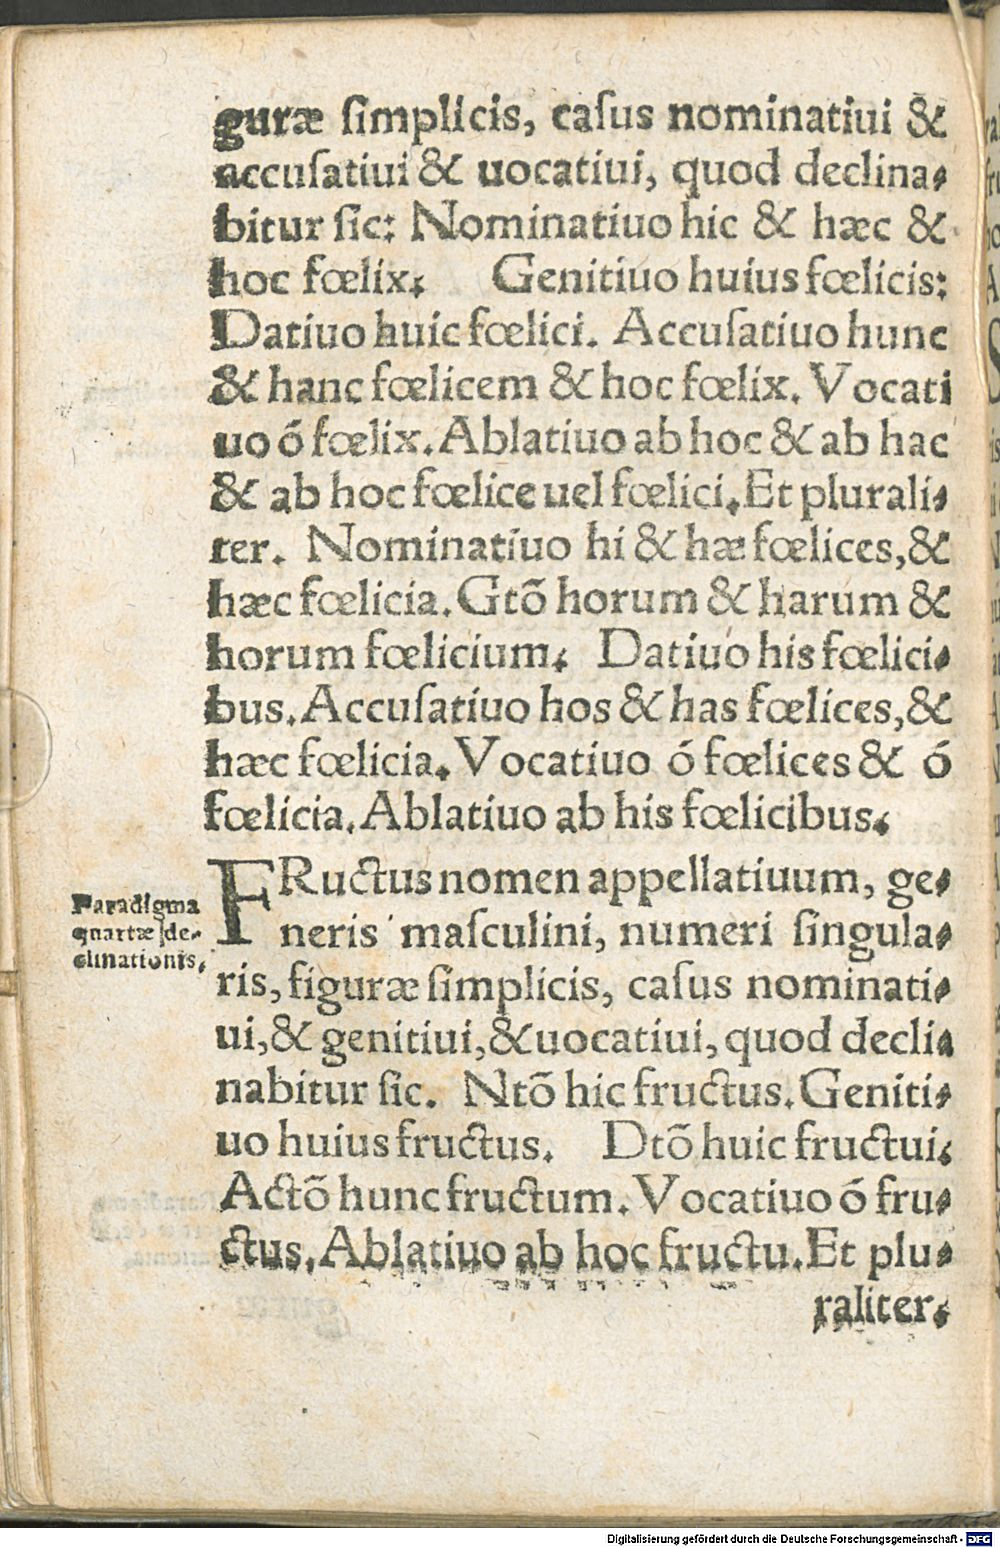 guræ ſimplicis, caſus nominatiui &
accuſatiui & uocatiui, quod declina-
bitur ſic: Nominatiuo hic & hæc &
hoc fœlix. Genitiuo huius fœlicis:
Datiuo huic fœlici. Accuſatiuo hunc
& hanc fœlicem & hoc fœlix. Vocati
uo ó fœlix. Ablatiuo ab hoc & ab hac
& ab hoc fœlice uel fœlici. Et plurali-
ter. Nominatiuo hi & hæ fœlices, &
hæc fœlicia. Gtõ horum & harum &
horum fœlicium. Datiuo his fœlici-
bus. Accuſatiuo hos & has fœlices, &
hæc fœlicia. Vocatiuo ó fœlices & ó
fœlicia. Ablatiuo ab his fœlicibus.
Paradigma
quartæ de-
clinationis.
FRuctus nomen appellatiuum, ge-
neris maſculini, numeri ſingula-
ris, figuræ ſimplicis, caſus nominati-
ui, & genitiui, & uocatiui, quod decli-
nabitur ſic. Ntõ hic fructus. Geniti-
uo huius fructus. Dtõ huic fructui.
Actõ hunc fructum. Vocatiuo ó fru-
ctus. Ablatiuo ab hoc fructu. Et plu-
raliter.
Digitalisierung gefördert durch die Deutsche Forschungsgemeinschaft - DFG